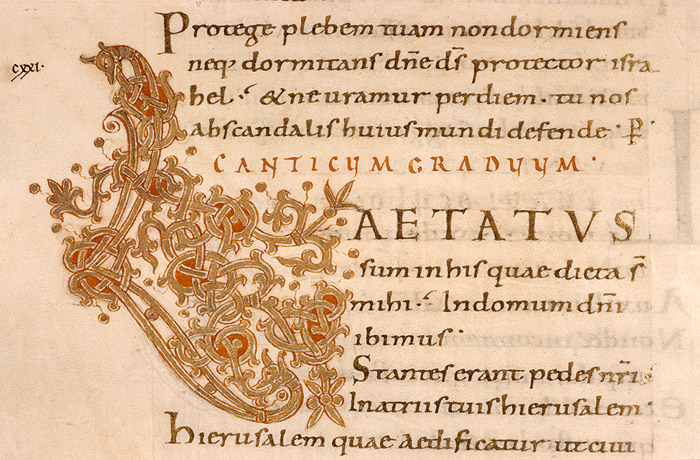 Protege plebem tuam non dormiens
neq; dormitans dn̄e d̄s protector isra
hel · & ne uramur per diem · tu nos
cxxi.
ab scandalis huius mundi defende · P̄
CANTICUM GRADUUM ·
LAETATUS
sum in his quae dicta s̄
mihi · In domum dn̄i
ibimus ·
Stantes erant pedes nr̄i
In atriis tuis hierusalem ·
hierusalem quae aedificatur ut ciui